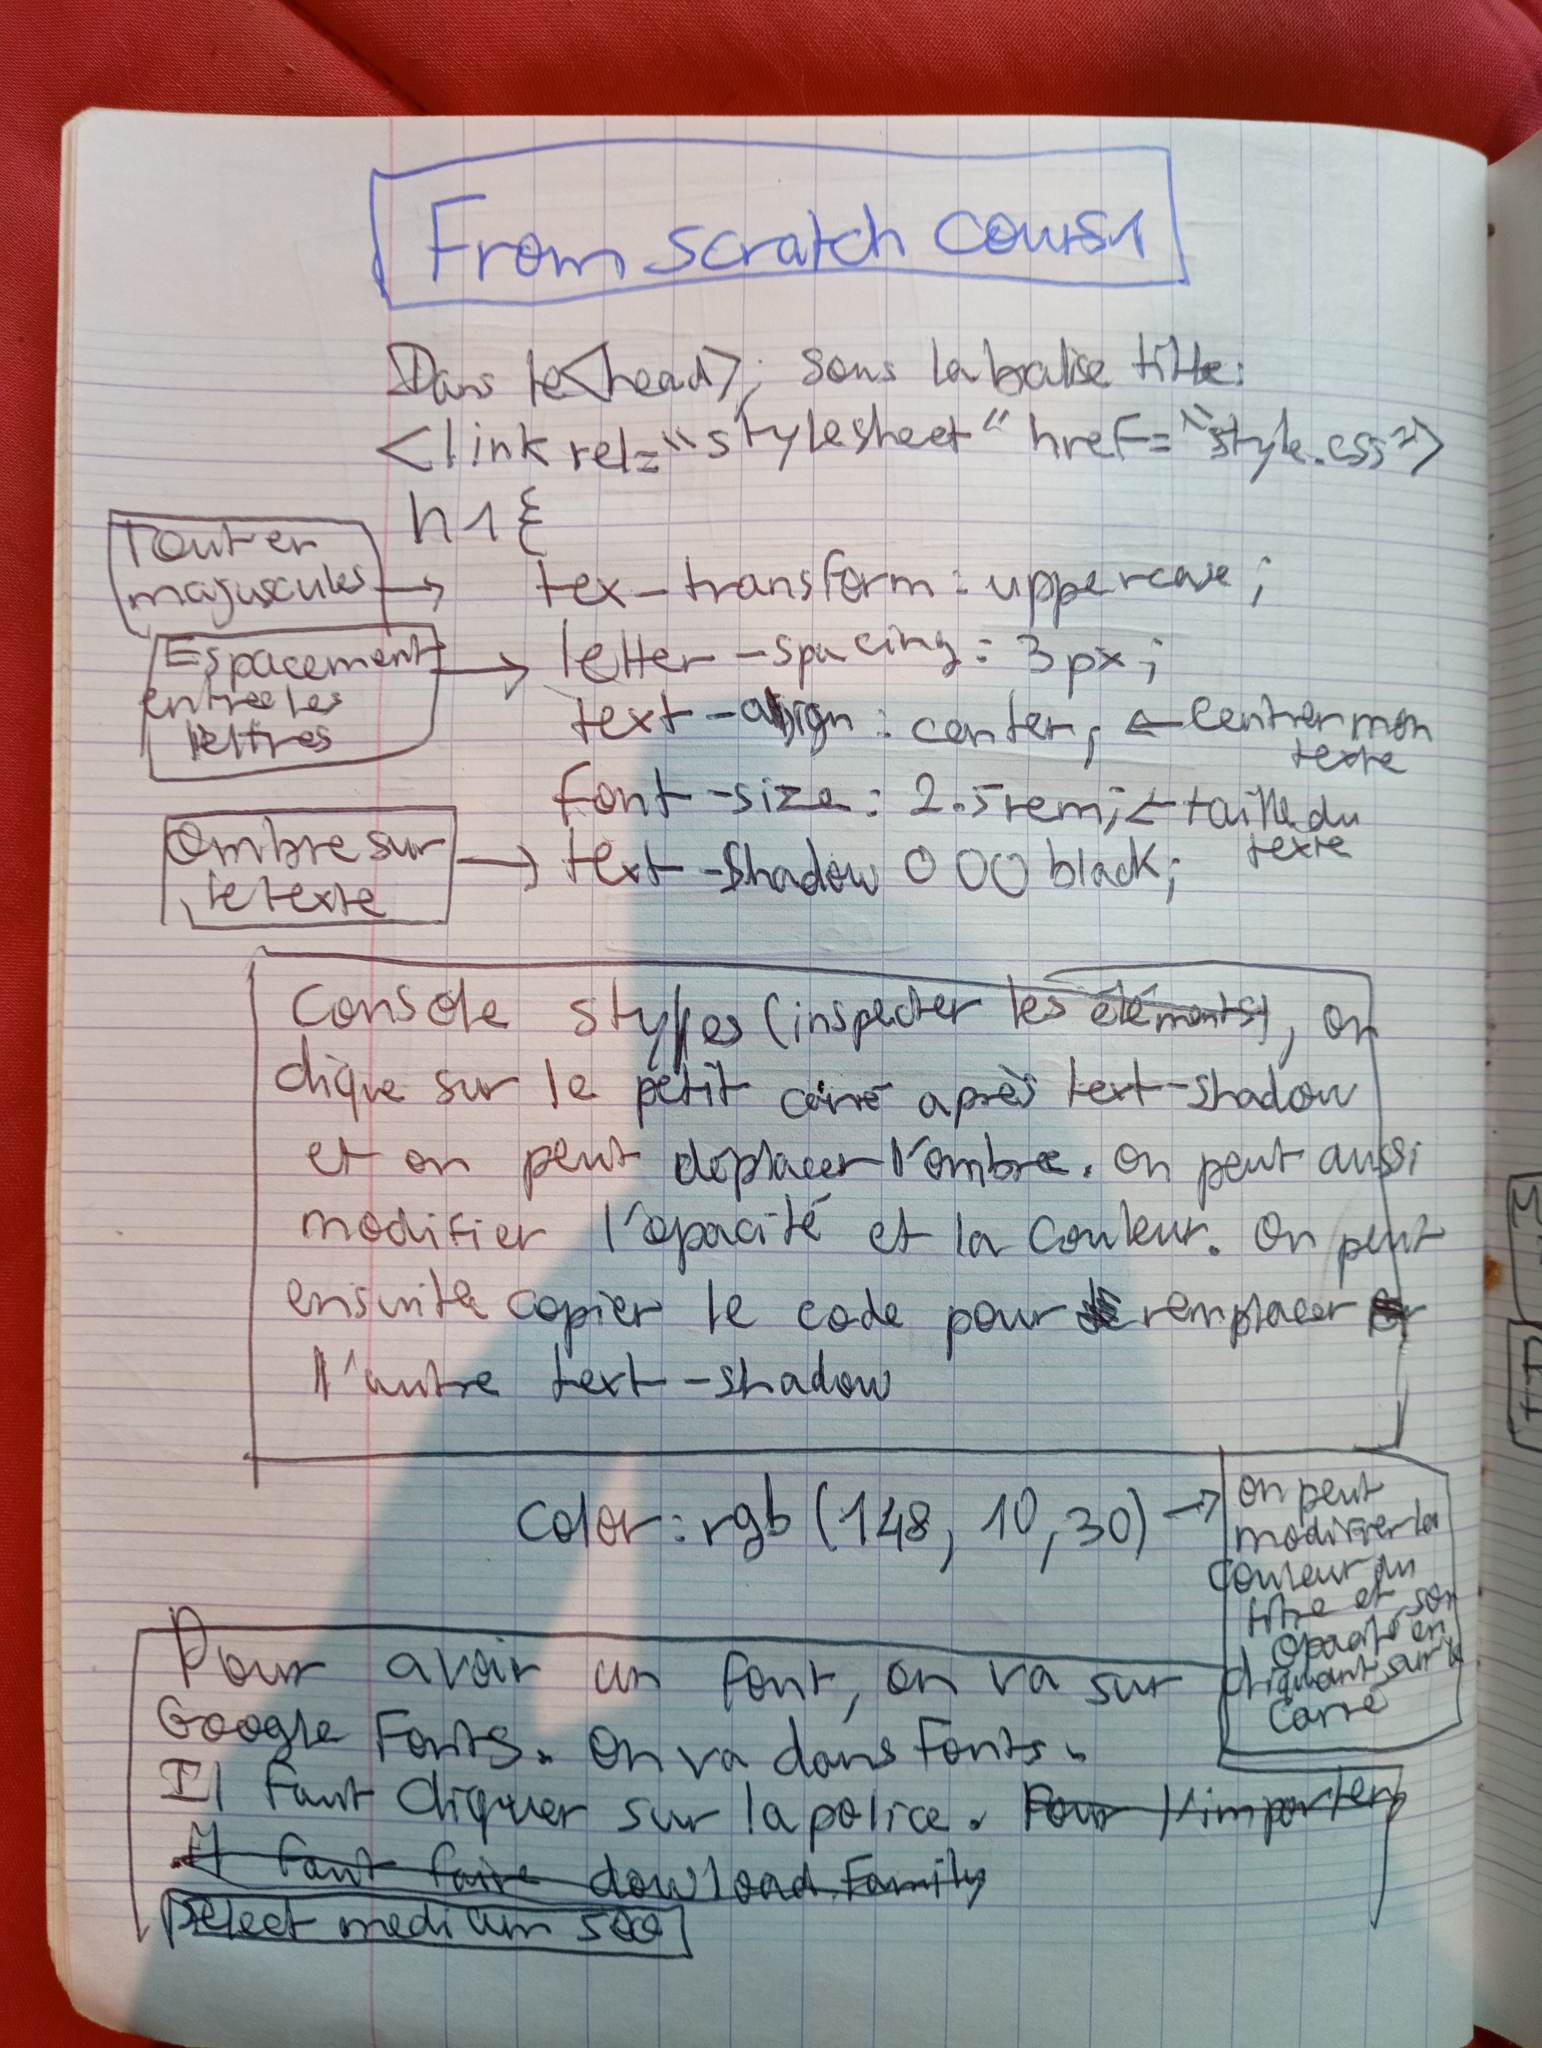 From scratch cours 1
Dans le <head>, sous la balise title:
<link rel="stylesheet" href="style.css">
h1{
Tout en
majuscules →
tex-transform: uppercase;
Espacement
entre les
lettres
→ letter-spacing: 3px;
text-align: center; ← Centrer mon
texte
font-size: 2.5rem; ← taille du
texte
Ombre sur
le texte
→ text-shadow 0 0 0 black;
Console styles (inspecter les éléments), on
clique sur le petit carré après text-shadow
et on peut déplacer l'ombre. On peut aussi
modifier l'opacité et la couleur. On peut
ensuite copier le code pour remplacer
l'autre text-shadow
color: rgb (148, 10, 30) →
on peut
modifier la
couleur du
titre et son
opacité en
cliquant sur le
carré
Pour avoir un font, on va sur
Google Fonts. On va dans Fonts.
Il faut cliquer sur la police. Pour l'importer
Il faut faire dowload Family
Select medium 500